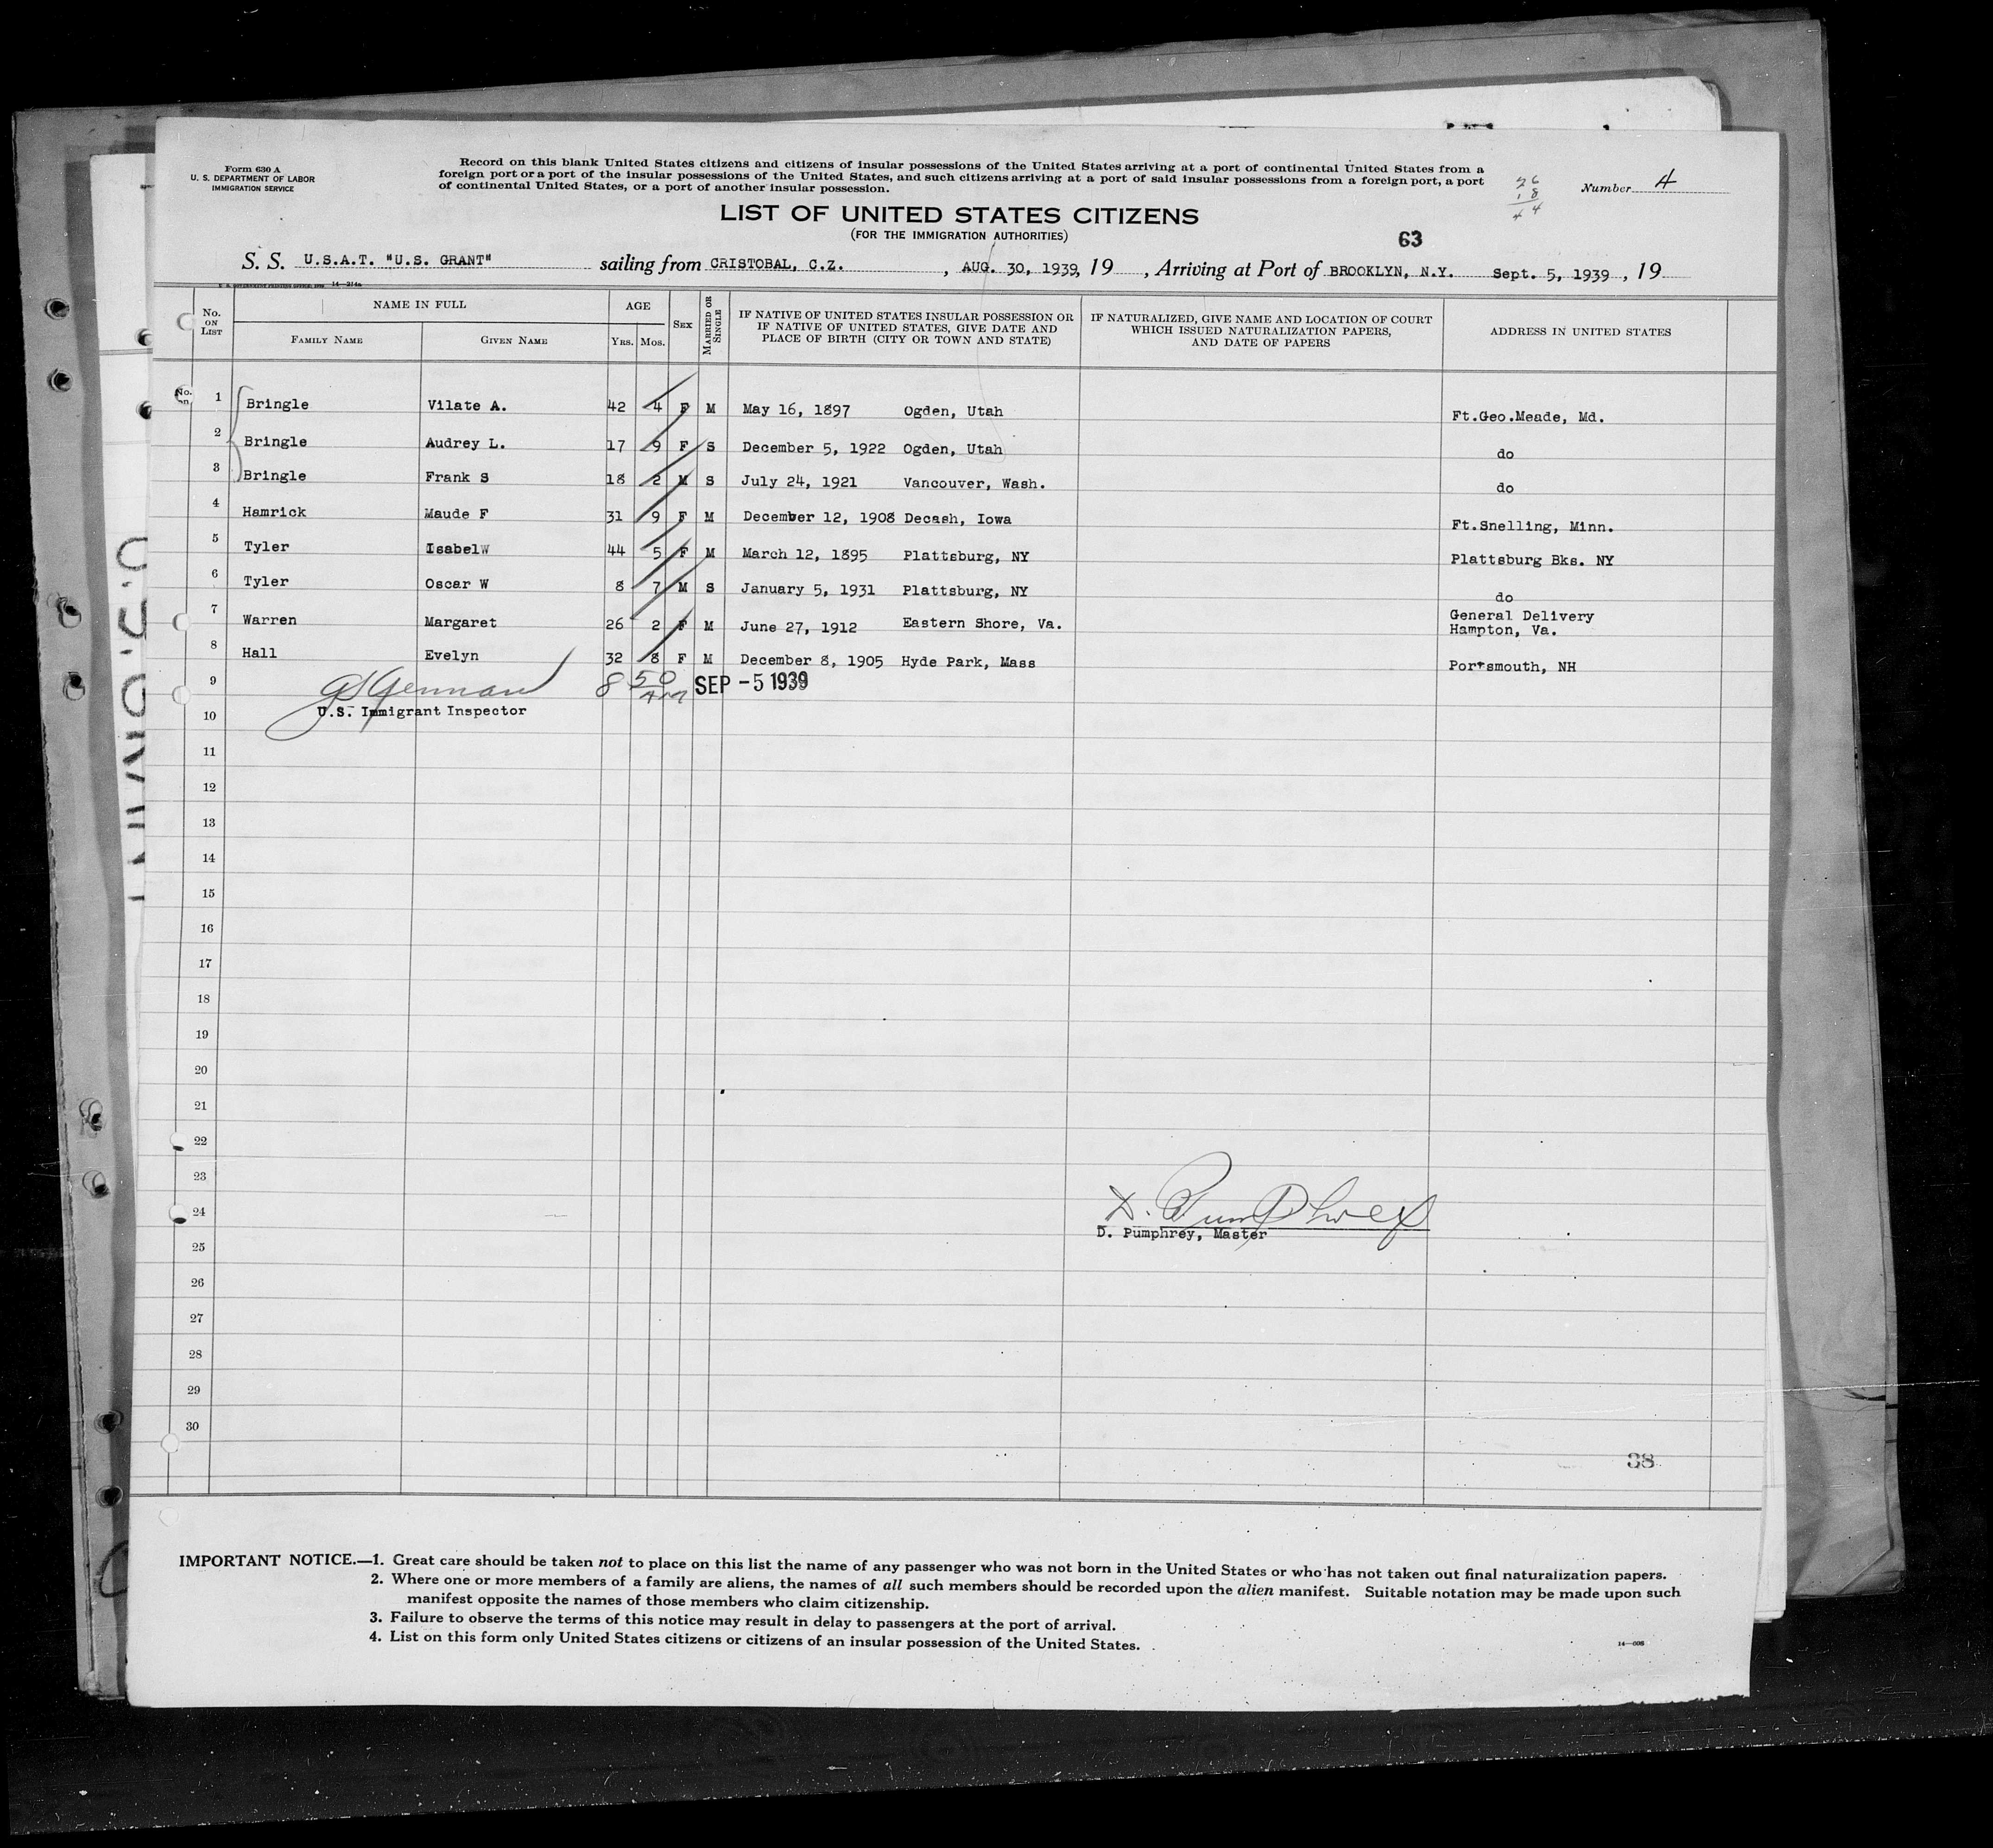 Form 630 A
U. S. DEPARTMENT OF LABOR
IMMIGRATION SERVICE
Record on this blank United States citizens and citizens of insular possessions of the United States arriving at a port of continental United States from a
foreign port or a port of the insular possessions of the United States, and such citizens arriving at a port of said insular possessions from a foreign port, a port
of continental United States, or a port of another insular possession.
Number 4
LIST OF UNITED STATES CITIZENS
(FOR THE IMMIGRATION AUTHORITIES)
63
S. S. U.S.A.T. "U.S. GRANT" sailing from CRISTOBAL, C.Z. , AUG. 30, 1939, 19 , Arriving at Port of BROOKLYN, N.Y. Sept. 5, 1939 , 19
No. ON LIST
NAME IN FULL
FAMILY NAME GIVEN NAME
AGE
YRS. MOS.
SEX
MARRIED OR SINGLE
IF NATIVE OF UNITED STATES INSULAR POSSESSION OR
IF NATIVE OF UNITED STATES, GIVE DATE AND
PLACE OF BIRTH (CITY OR TOWN AND STATE)
IF NATURALIZED, GIVE NAME AND LOCATION OF COURT
WHICH ISSUED NATURALIZATION PAPERS,
AND DATE OF PAPERS
ADDRESS IN UNITED STATES
1 Bringle Vilate A. 42 4 F M May 16, 1897 Ogden, Utah Ft.Geo.Meade, Md.
2 Bringle Audrey L. 17 9 F S December 5, 1922 Ogden, Utah do
3 Bringle Frank S 18 2 M S July 24, 1921 Vancouver, Wash. do
4 Hamrick Maude F 31 9 F M December 12, 1908 Decash, Iowa Ft.Snelling, Minn.
5 Tyler IsabelW 44 5 F M March 12, 1895 Plattsburg, NY Plattsburg Bks. NY
6 Tyler Oscar W 8 7 M S January 5, 1931 Plattsburg, NY do
7 Warren Margaret 26 2 F M June 27, 1912 Eastern Shore, Va. General Delivery
Hampton, Va.
8 Hall Evelyn 32 8 F M December 8, 1905 Hyde Park, Mass Portsmouth, NH
9 8 50 AM SEP -5 1939
10 U.S. Immigrant Inspector
11
12
13
14
15
16
17
18
19
20
21
22
23
24 D. Pumphrey
D. Pumphrey, Master
25
26
27
28
29
30
38
IMPORTANT NOTICE.—1. Great care should be taken not to place on this list the name of any passenger who was not born in the United States or who has not taken out final naturalization papers.
2. Where one or more members of a family are aliens, the names of all such members should be recorded upon the alien manifest. Suitable notation may be made upon such
manifest opposite the names of those members who claim citizenship.
3. Failure to observe the terms of this notice may result in delay to passengers at the port of arrival.
4. List on this form only United States citizens or citizens of an insular possession of the United States.